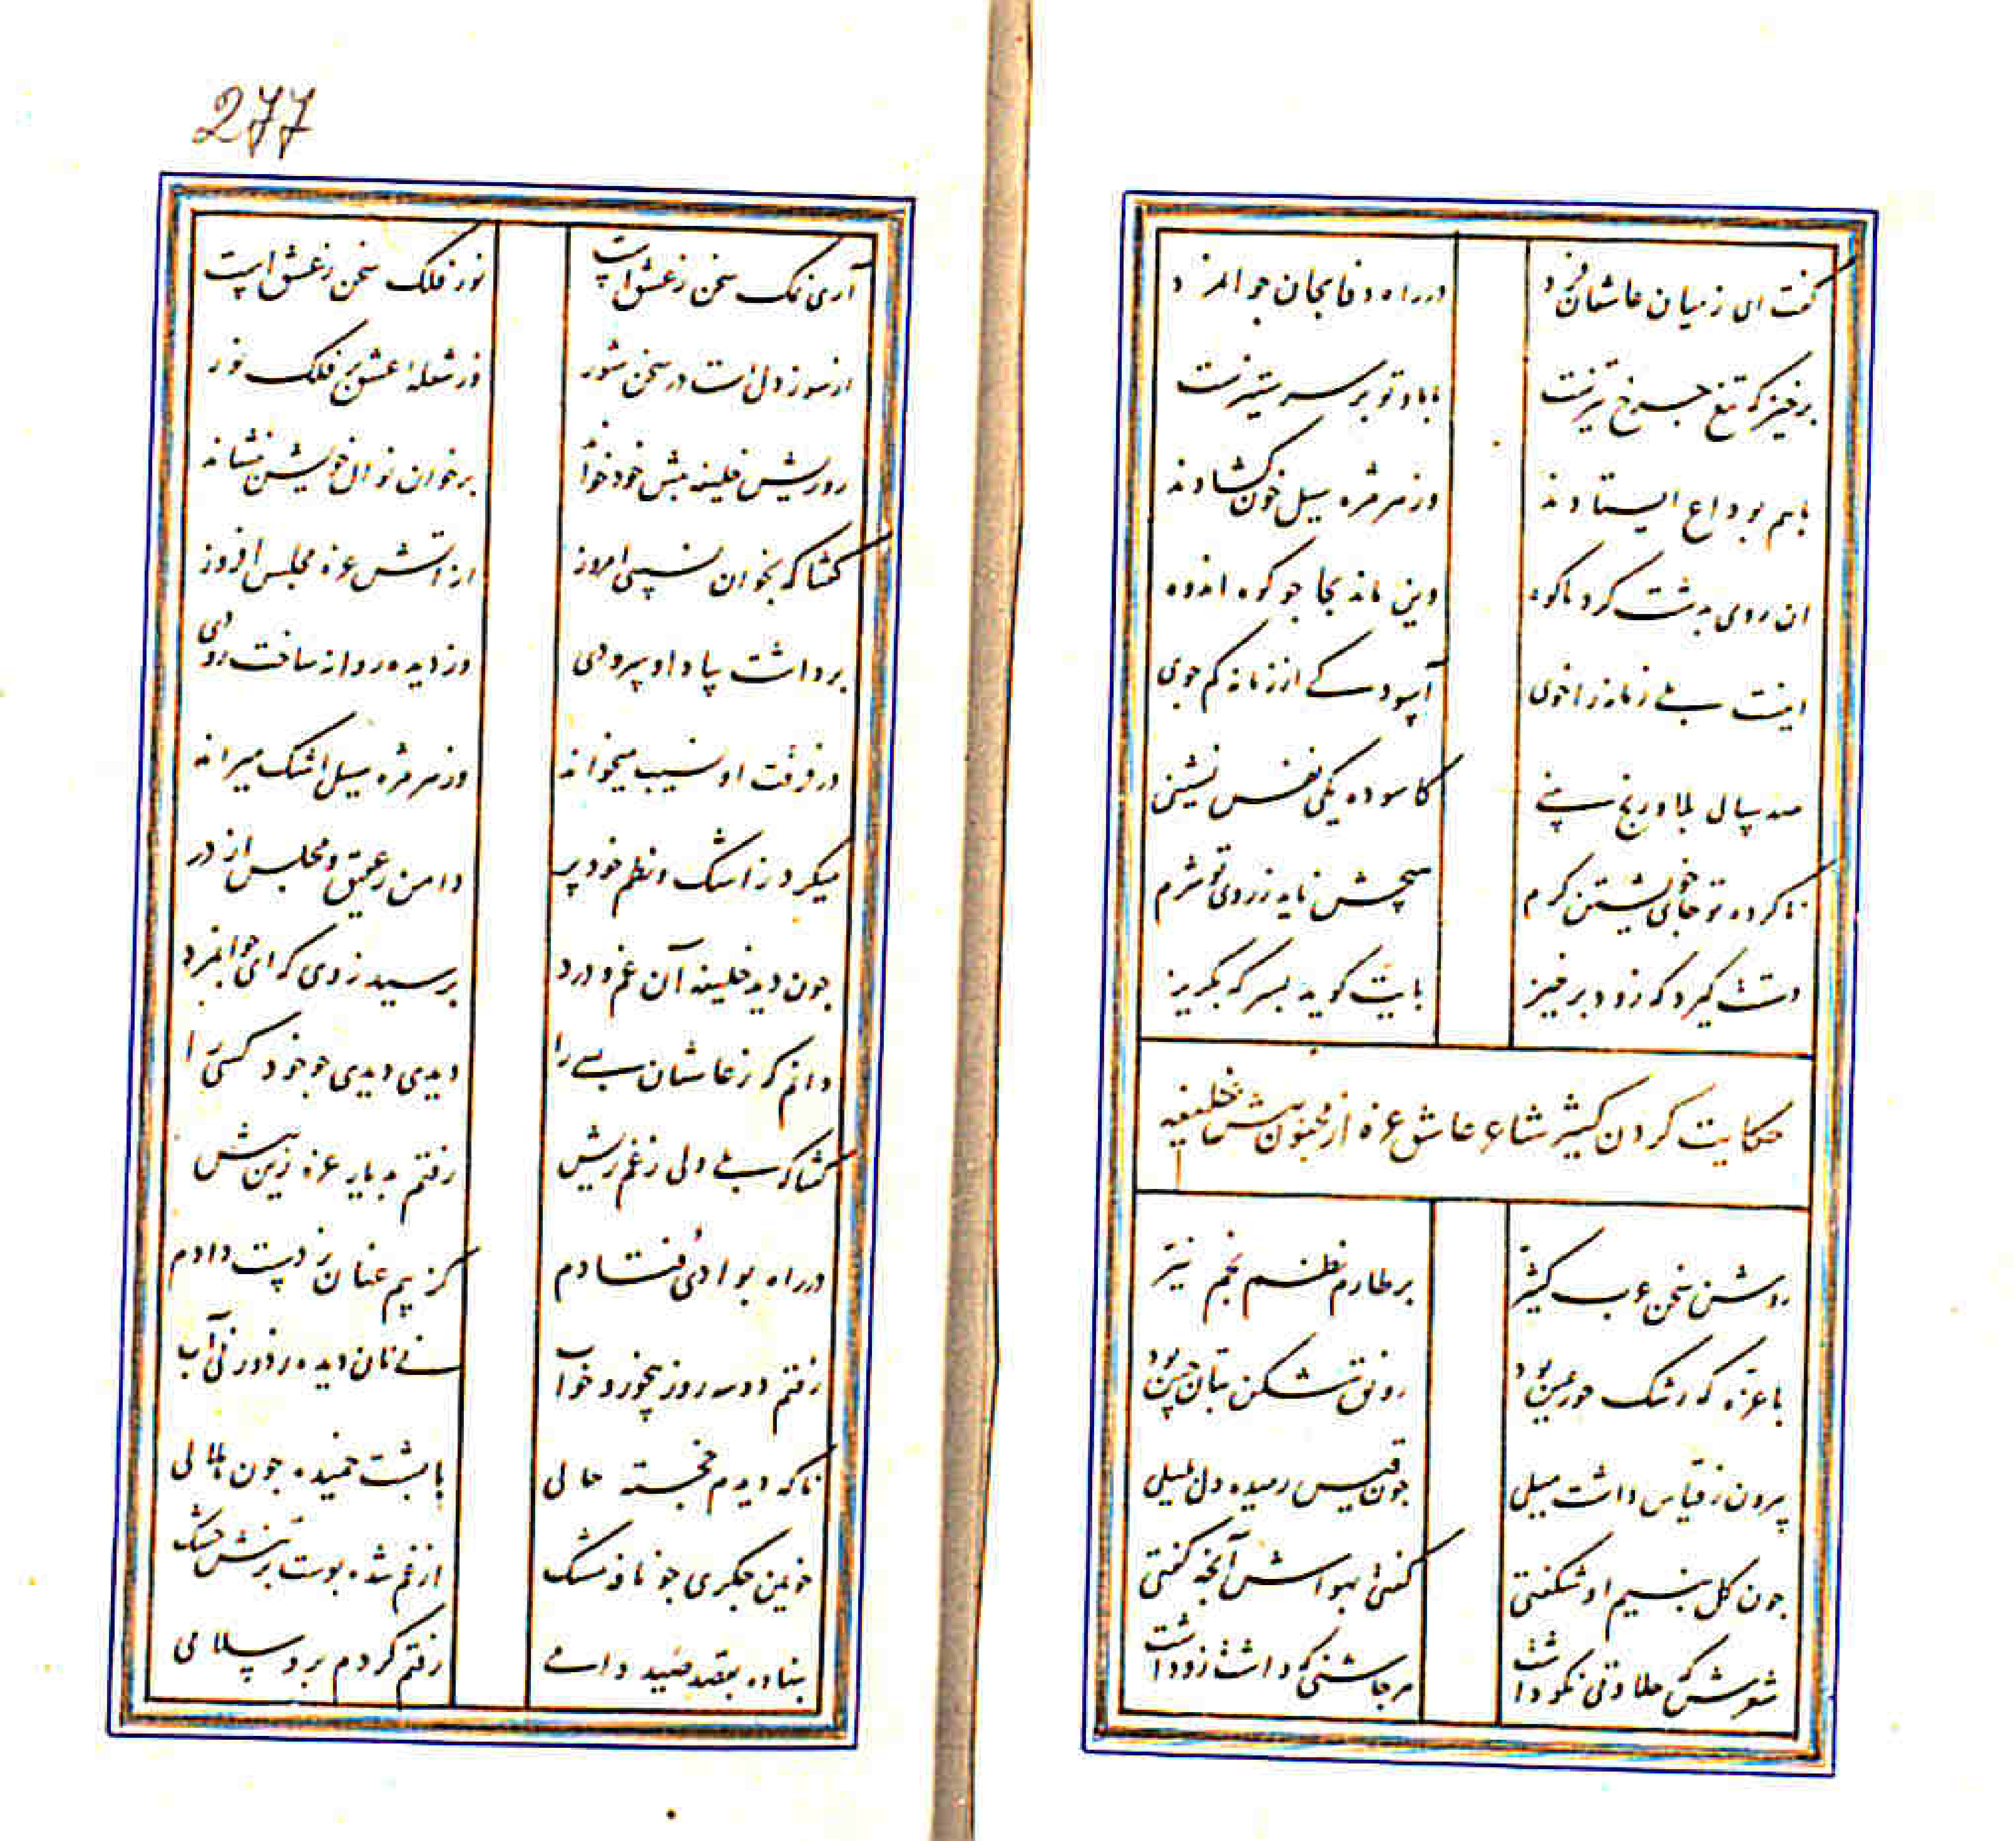 گفت ای ز میان عاشقان فرد در راه وفا بجان جوانمرد
برخیز که تیغ چرخ تیزست با ما و تو بر سر ستیزست
باهم بوداع ایستادند وز هر مژه سیل خون گشادند
ان روی بدشت کرد ناکوه وین ماند بجا جو کوه اندوه
اینست بلی زمانه را خوی آسودگی از زمانه کم جوی
صد سال بلا و رنج بینی کاسوده یکی نفس نشینی
ناکرده تو جای خویشتن گرم هیچش ناید ز روی تو شرم
دستت گیرد که زود برخیز پایت کوید بسر که بگریز
حکایت کردن کثیر شاعر عاشق عزه از مجنون پیش خلیفه
روشن سخن عرب کثیر بر طارم نظم نجم نیر
با عزه که رشک حور عین بود رونق شکن بتان چین بود
بیرون ز قیاس داشت میلی جون قیس رمیده دل بلیلی
جون کل بنسیم او شکفتی گفتی بهواش آنجه گفتی
شعرش که حلاوتی نکو داشت هر جاشنی که داشت زو داشت
277
آری نمک سخن ز عشق است نور فلک سخن ز عشق است
از سوز دل است در سخن شور وز شعله عشق بر فلک نور
روزیش خلیفه پیش خود خواند بر خوان نوال خویش بنشاند
گفتا که بخوان نسیبی امروز از آتش عزه مجلس افروز
برداشت بیاد او سرودی وز دیده روانه ساخت رودی
در فرقت او نسیب میخواند وز هر مژه سیل اشک میراند
میکرد ز اشک و نظم خود پر دامن ز عقیق و مجلس از در
جون دید خلیفه آن غم و درد پرسید ز وی که ای جوانمرد
دانم که ز عاشقان بسی را دیدی دیدی جو خود کسی را
گفتا که بلی دلی ز غم ریش رفتم بدیار عزه زین پیش
در راه بوادی فتادم کز بیم عنان ز دست دادم
رفتم دو سه روز بیخور و خواب نی نان دیده در او نی آب
ناگه دیدم خجسته حالی با پشت خمیده جون هلالی
خونین جگری جو نافه مشک از غم شده پوست بر تنش خشک
بنهاده بقصد صید دامی رفتم کردم برو سلامی